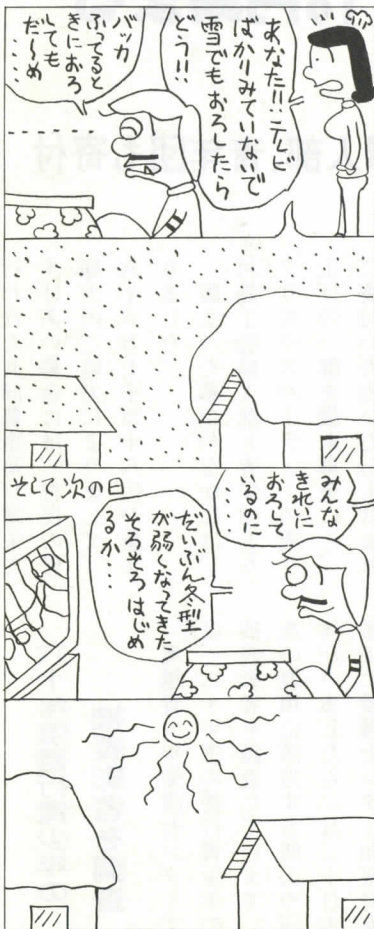 あなた!!テレビ
ばかりみていないで
雪でもおろしたら
どう!!
バッカ
ふってると
きにおろ
しても
だ〜め
・・・
みんな
きれいに
おろして
いるのに
・・・
そして次の日
だいぶん冬型
が弱くなってきた
そろそろはじめ
るか・・・